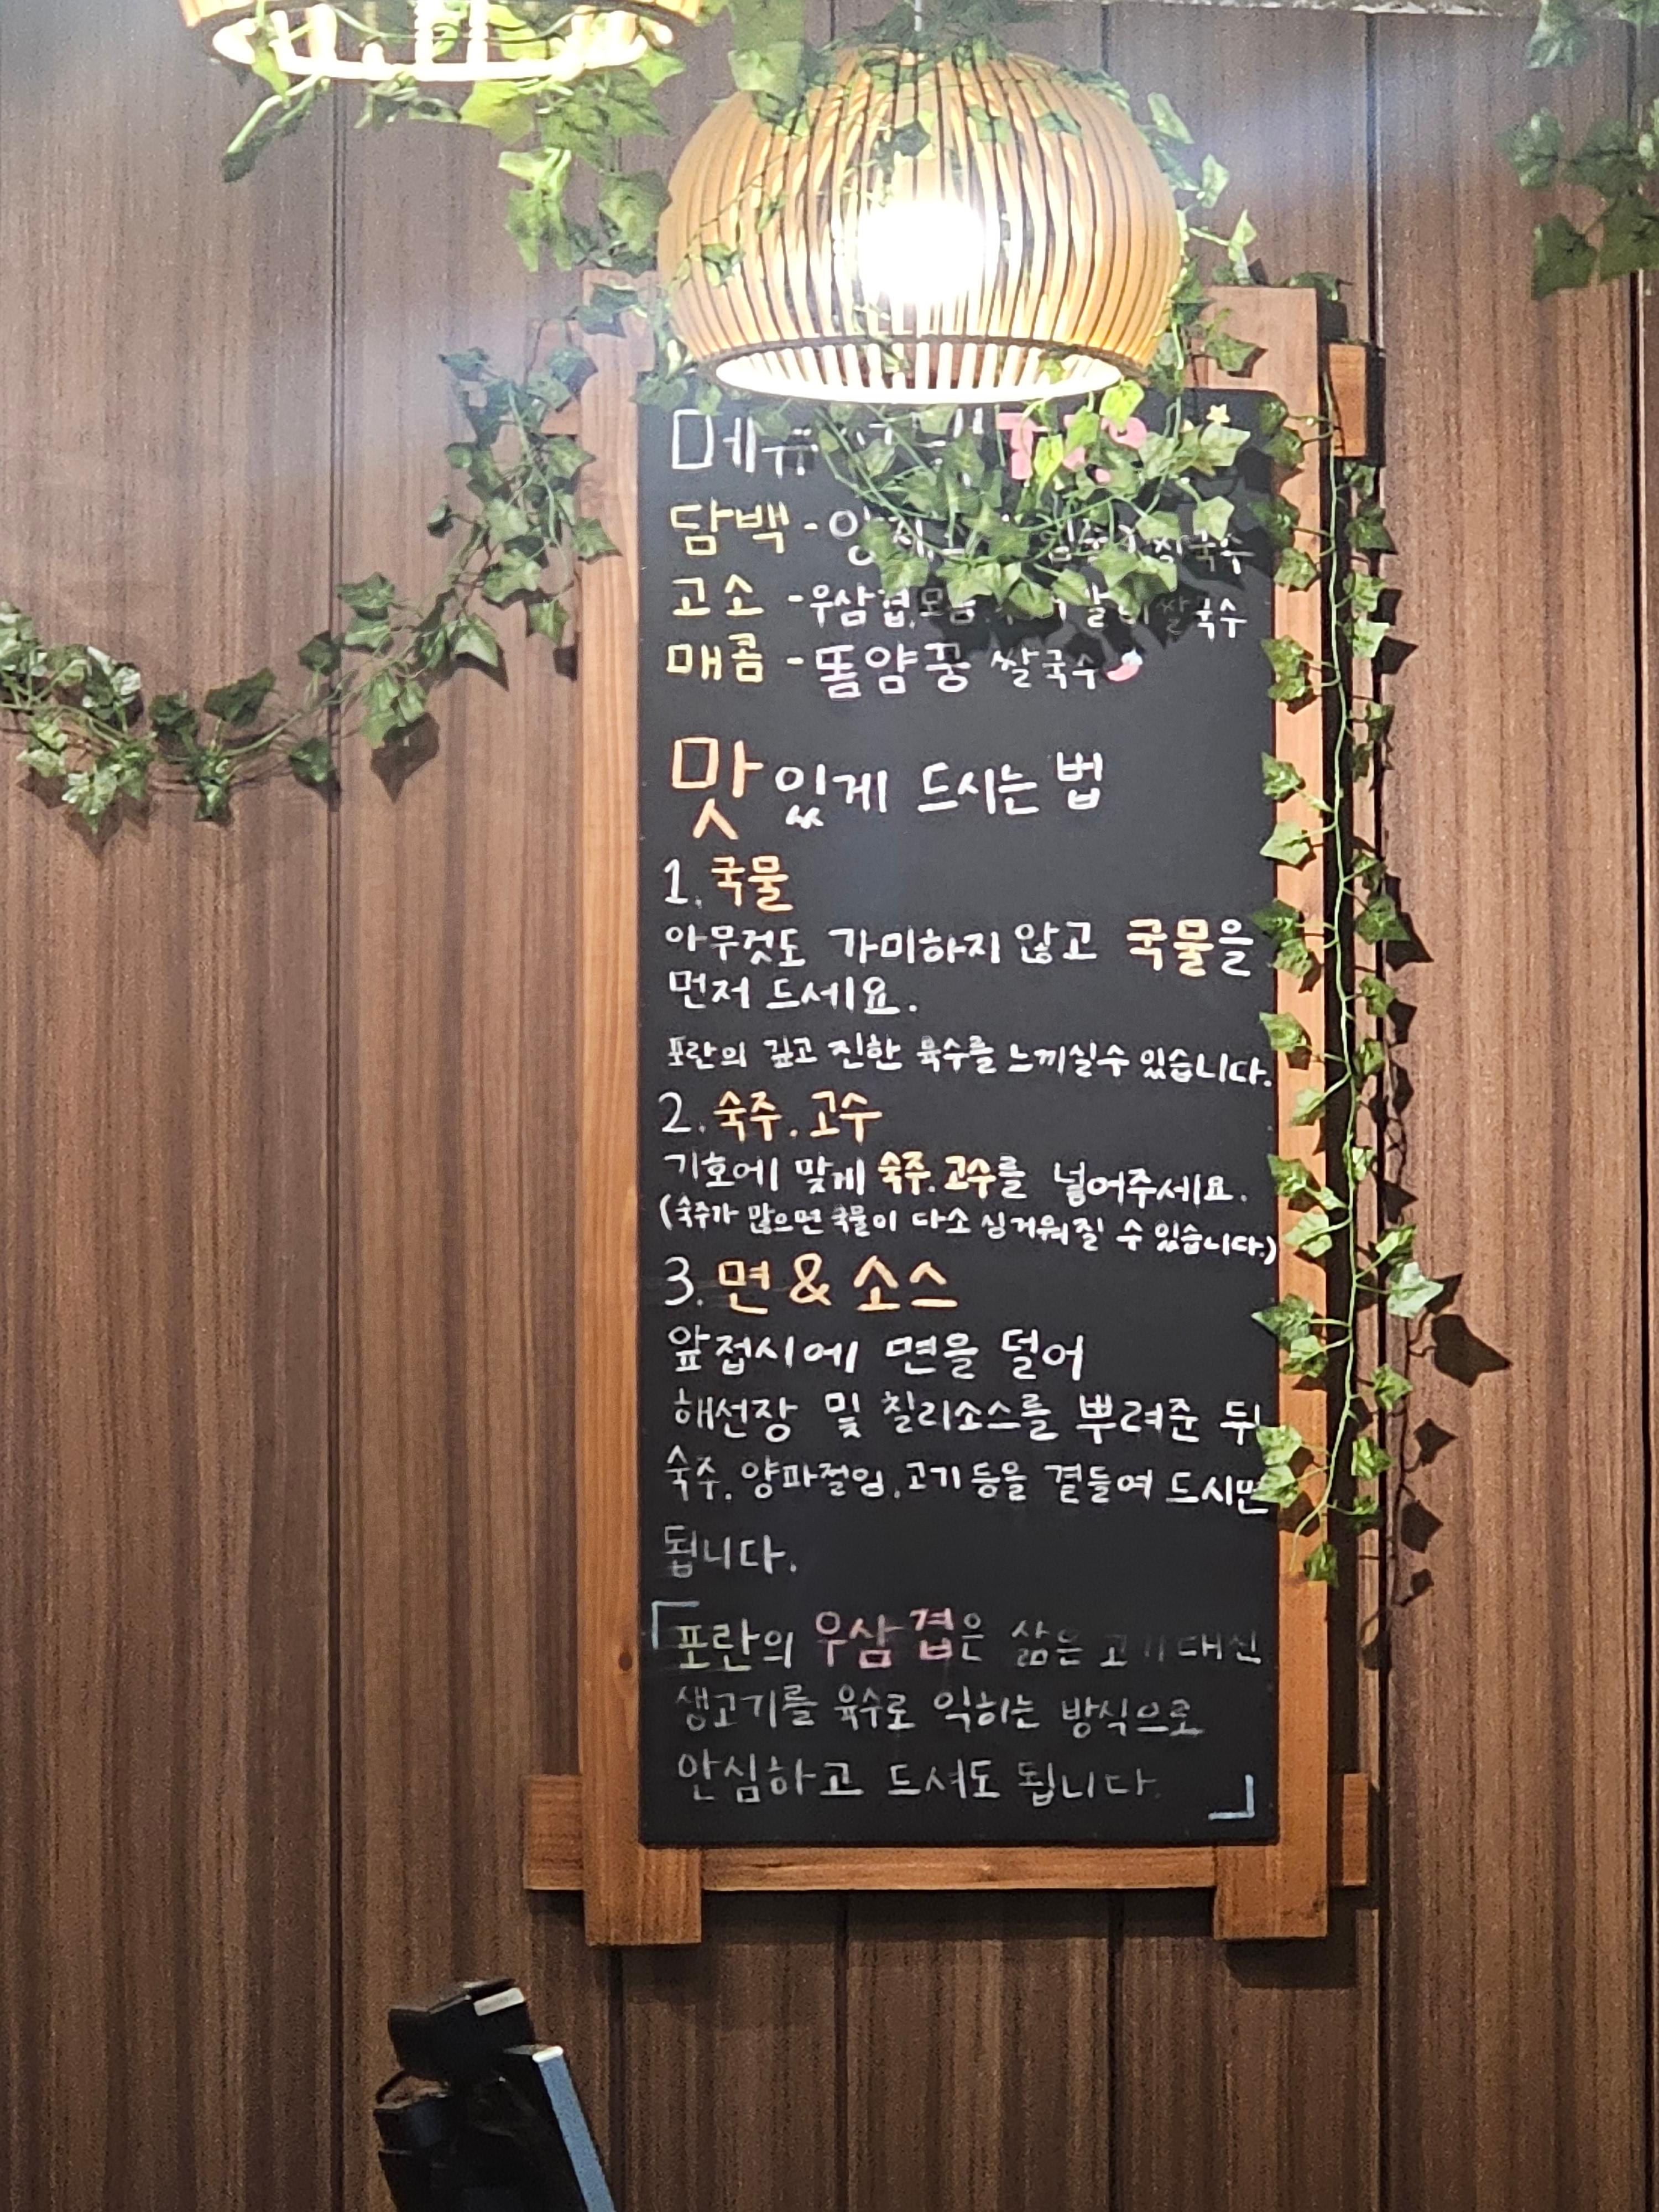 메뉴
담백 - 쌀국수
고소 - 우삼겹, 모듬, 쌀국수
매콤 - 똠얌꿍 쌀국수
맛있게 드시는 법
1. 국물
아무것도 가미하지 않고 국물을
먼저 드세요.
포란의 깊고 진한 육수를 느끼실수 있습니다.
2. 숙주. 고수
기호에 맞게 숙주. 고수를 넣어주세요.
(숙주가 많으면 국물이 다소 싱거워질 수 있습니다.)
3. 면 & 소스
앞접시에 면을 덜어
해선장 및 칠리소스를 뿌려준 뒤
숙주. 양파절임. 고기 등을 곁들여 드시면
됩니다.
「포란의 우삼겹은 삶은 고기 대신
생고기를 육수로 익히는 방식으로
안심하고 드셔도 됩니다.」